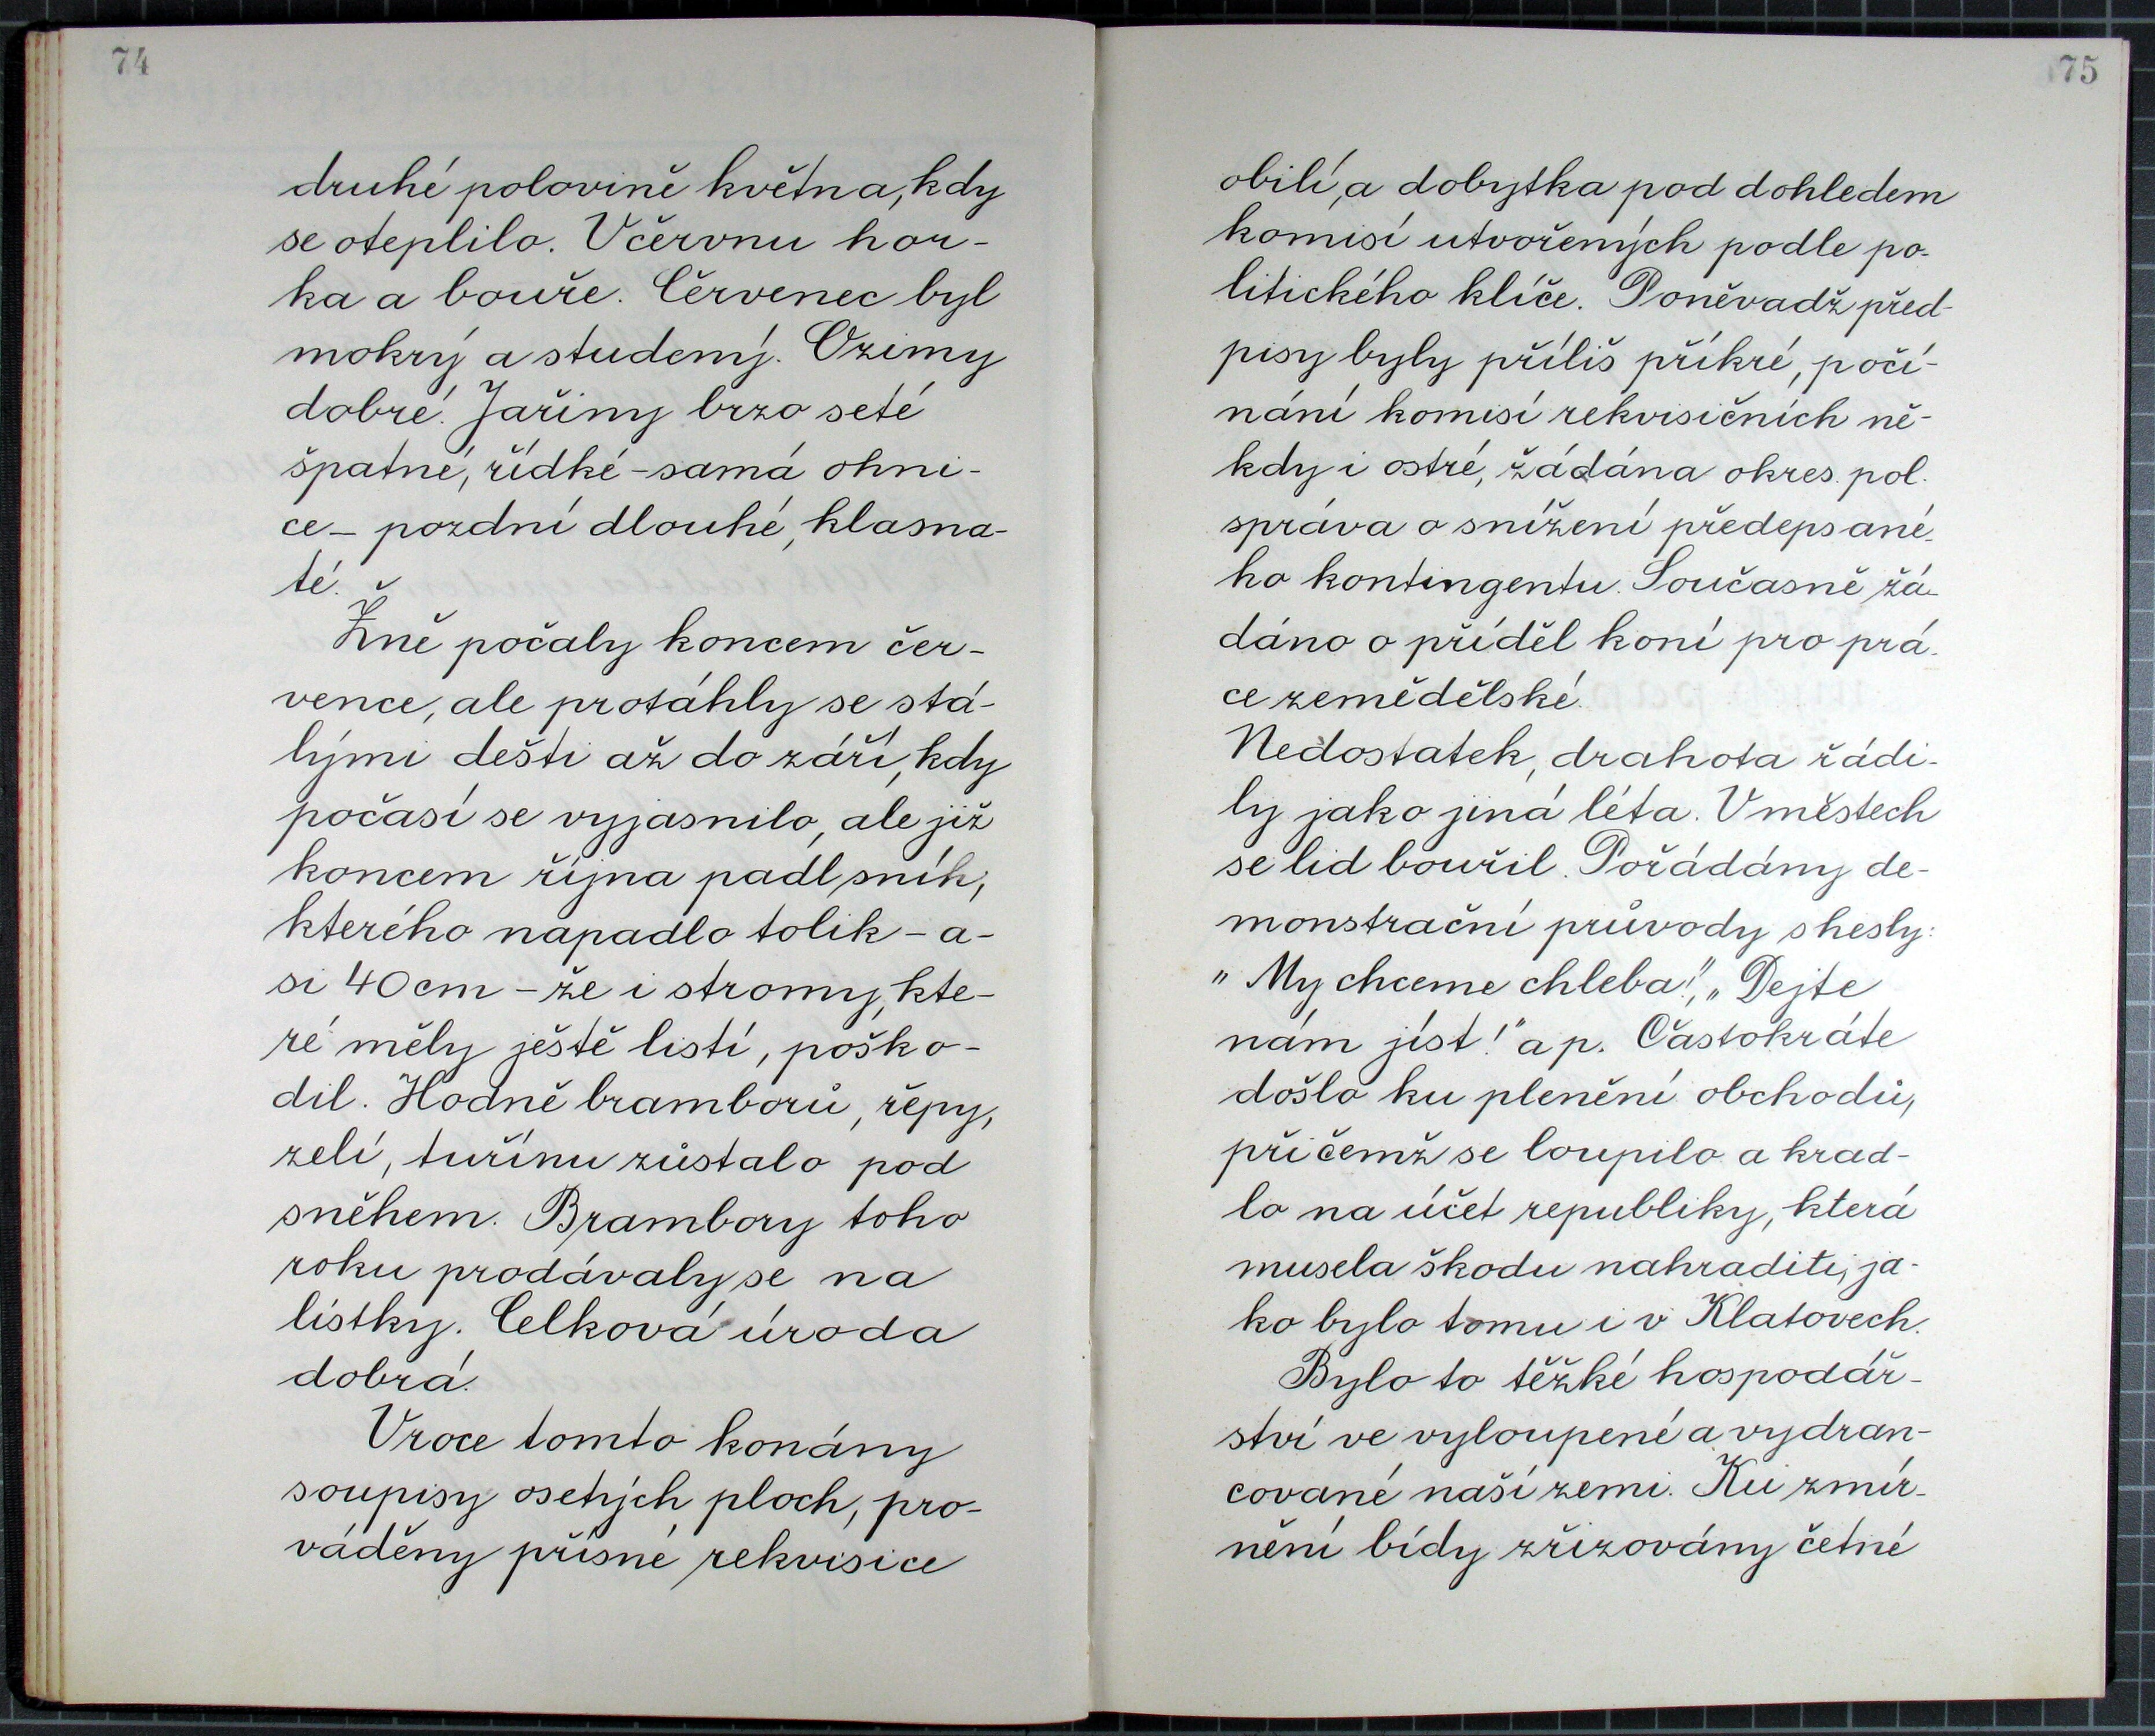 74
druhé polovině května, kdy
se oteplilo. V červnu hor-
ka a bouře. Červenec byl
mokrý a studený. Ozimy
dobré. Jařiny brzo seté
špatné, řídké - samá ohni-
ce - pozdní dlouhé, klasna-
té.
Žně počaly koncem čer-
vence, ale protáhly se stá-
lými dešti až do září, kdy
počasí se vyjasnilo, ale již
koncem října padl sníh,
kterého napadlo tolik - a-
si 40 cm - že i stromy, kte-
ré měly ještě listí, poško-
dil. Hodně bramborů, řepy,
zelí, tuřínu zůstalo pod
sněhem. Brambory toho
roku prodávaly se na
lístky. Celková úroda
dobrá.
V roce tomto konány
soupisy osetých ploch, pro-
váděny přísné rekvisice
75
obilí, a dobytka pod dohledem
komisí utvořených podle po-
litického klíče. Poněvadž před-
pisy byly příliš příkré, počí-
nání komisí rekvisičních ně-
kdy i ostré, žádána okres. pol.
správa o snížení předepsané-
ho kontingentu. Současně žá-
dáno o příděl koní pro prá-
ce zemědělské.
Nedostatek, drahota řádi-
ly jako jiná léta. V městech
se lid bouřil. Pořádány de-
monstrační průvody s hesly:
"My chceme chleba!", "Dejte
nám jíst!" a p. Částokráte
došlo ku plenění obchodů,
při čemž se loupilo a krad-
lo na účet republiky, která
musela škodu nahraditi, ja-
ko bylo tomu i v Klatovech.
Bylo to těžké hospodář-
ství ve vyloupené a vydran-
cované naší zemi. Ku zmír-
nění bídy zřizovány četné